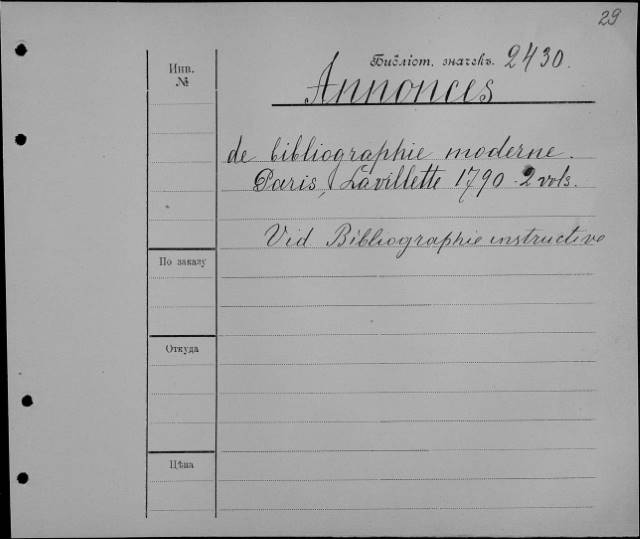 29
Библіот. значекъ. 2430.
Инв.
№
Annonces
de bibliographie moderne.
Paris, Lavillette 1790 - 2 vols.
Vid Bibliographie instructive
По заказу
Откуда
Цѣна